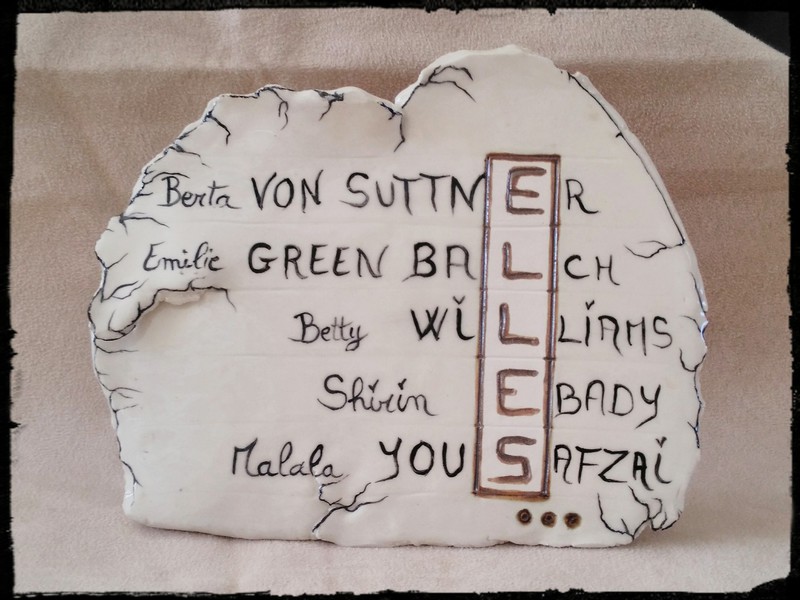 Berta VON SUTTNER
Emilie GREEN BALCH
Betty WiLLiAMS
Shirin EBADY
Malala YOUSAFZAi
...